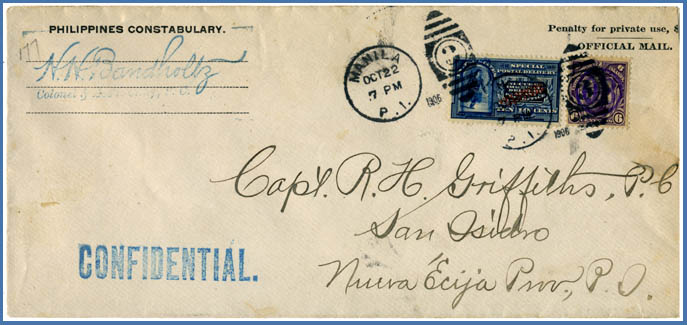 177
PHILIPPINES CONSTABULARY.
H. H. Bandholtz
Colonel
Penalty for private use, $
OFFICIAL MAIL.
MANILA
OCT 22
7 PM
P. I.
1906
2
SPECIAL
POSTAL DELIVERY
TEN CENTS
6
P. I.
1906
Capt. R. H. Griffiths, P. C
San Isidro
Nueva Ecija Prov., P. I.
CONFIDENTIAL.